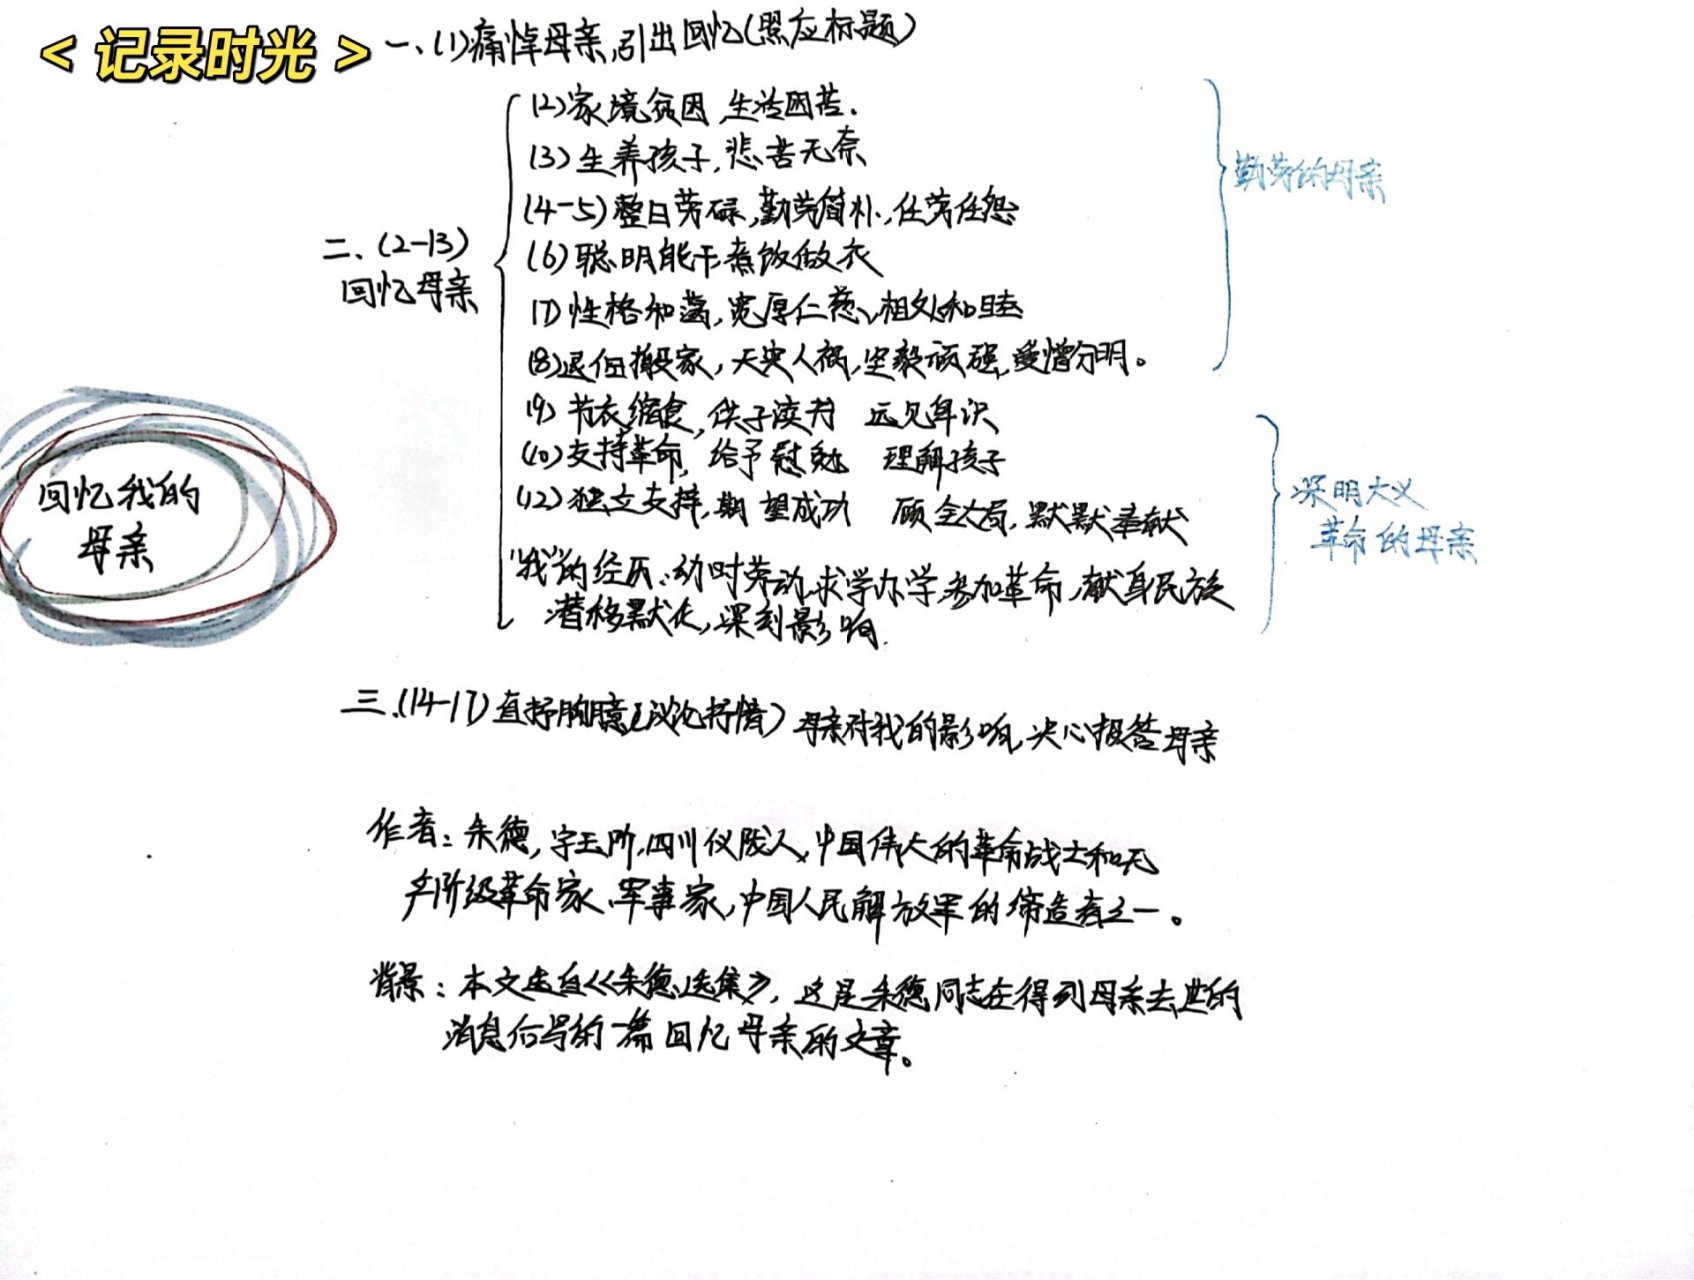 < 记录时光 >
一、(1)痛悼母亲,引出回忆(照应标题)
(2)家境贫困,生活困苦.
(3)生养孩子,悲苦无奈
(4-5)整日劳碌,勤劳简朴,任劳任怨
二、(2-13)
回忆母亲
(6)聪明能干煮饭做衣
(7)性格和蔼,宽厚仁慈、相处和睦
(8)退佃搬家,天灾人祸,坚毅顽强,爱憎分明。
勤劳的母亲
(9)节衣缩食,供子读书 远见卓识
(10)支持革命,给予慰勉 理解孩子
(12)独立支持,期望成功 顾全大局,默默奉献
深明大义
革命的母亲
"我"的经历:幼时劳动,求学办学,参加革命,献身民族
潜移默化,深刻影响.
回忆我的
母亲
三.(14-17)直抒胸臆(议论抒情)母亲对我的影响,决心报答母亲
作者:朱德,字玉阶,四川仪陇人,中国伟大的革命战士和无
产阶级革命家、军事家,中国人民解放军的缔造者之一。
背景:本文选自《朱德选集》,这是朱德同志在得到母亲去世的
消息后写的一篇回忆母亲的文章。